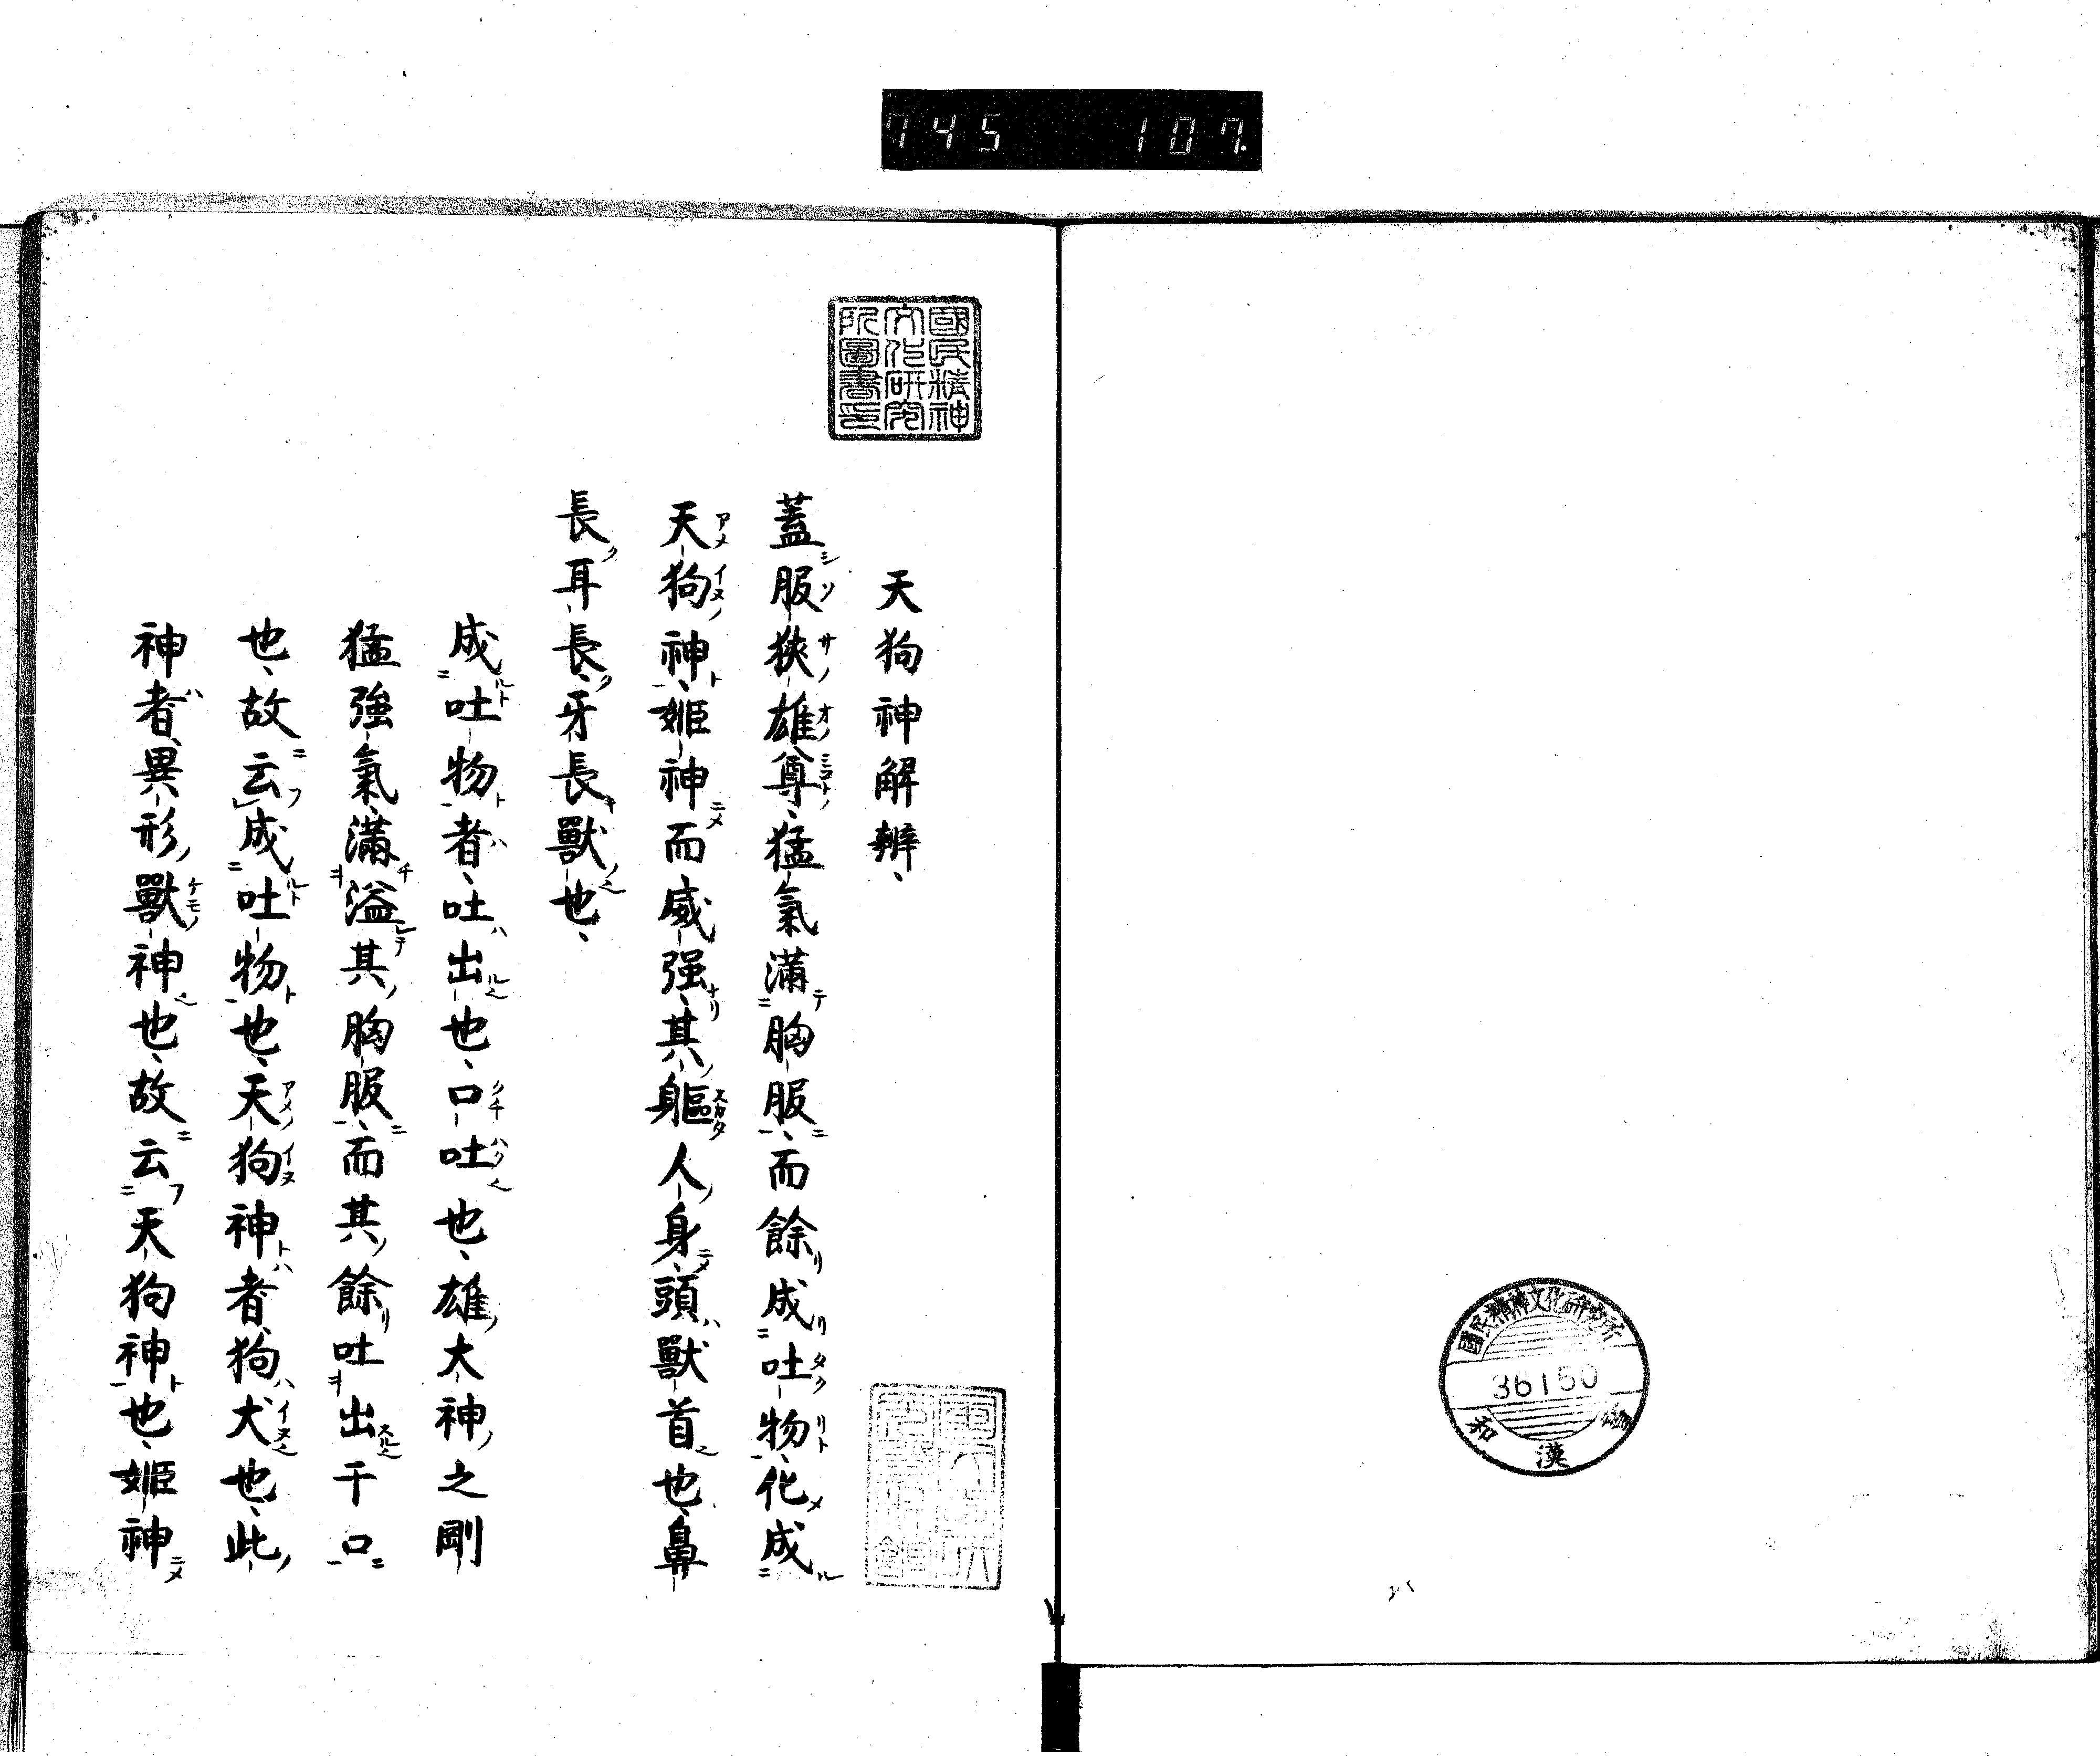 745 107.
國民精神
文化研究
所圖書印
天狗神解辨、
蓋服狹雄尊、猛氣滿胸服、而餘成吐物、化成
天狗神、姬神而威强、其軀人身、頭獸首也、鼻
長、耳長、牙長獸也、
成吐物者、吐出也、口吐也、雄大神之剛
猛強氣、滿溢其胸服、而其餘吐出于口
也、故云成吐物也、天狗神者、狗犬也、此
神者、異形獸神也、故云天狗神也、姬神
國民精神文化研究所
36150
和漢書